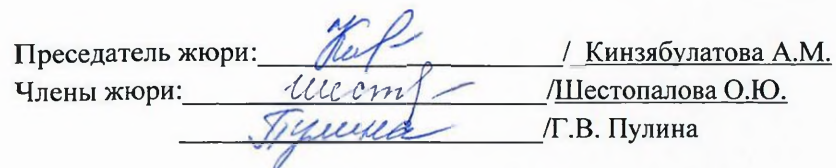 Преседатель жюри: / Кинзябулатова А.М.
Члены жюри: Шест /Шестопалова О.Ю.
Пулина /Г.В. Пулина